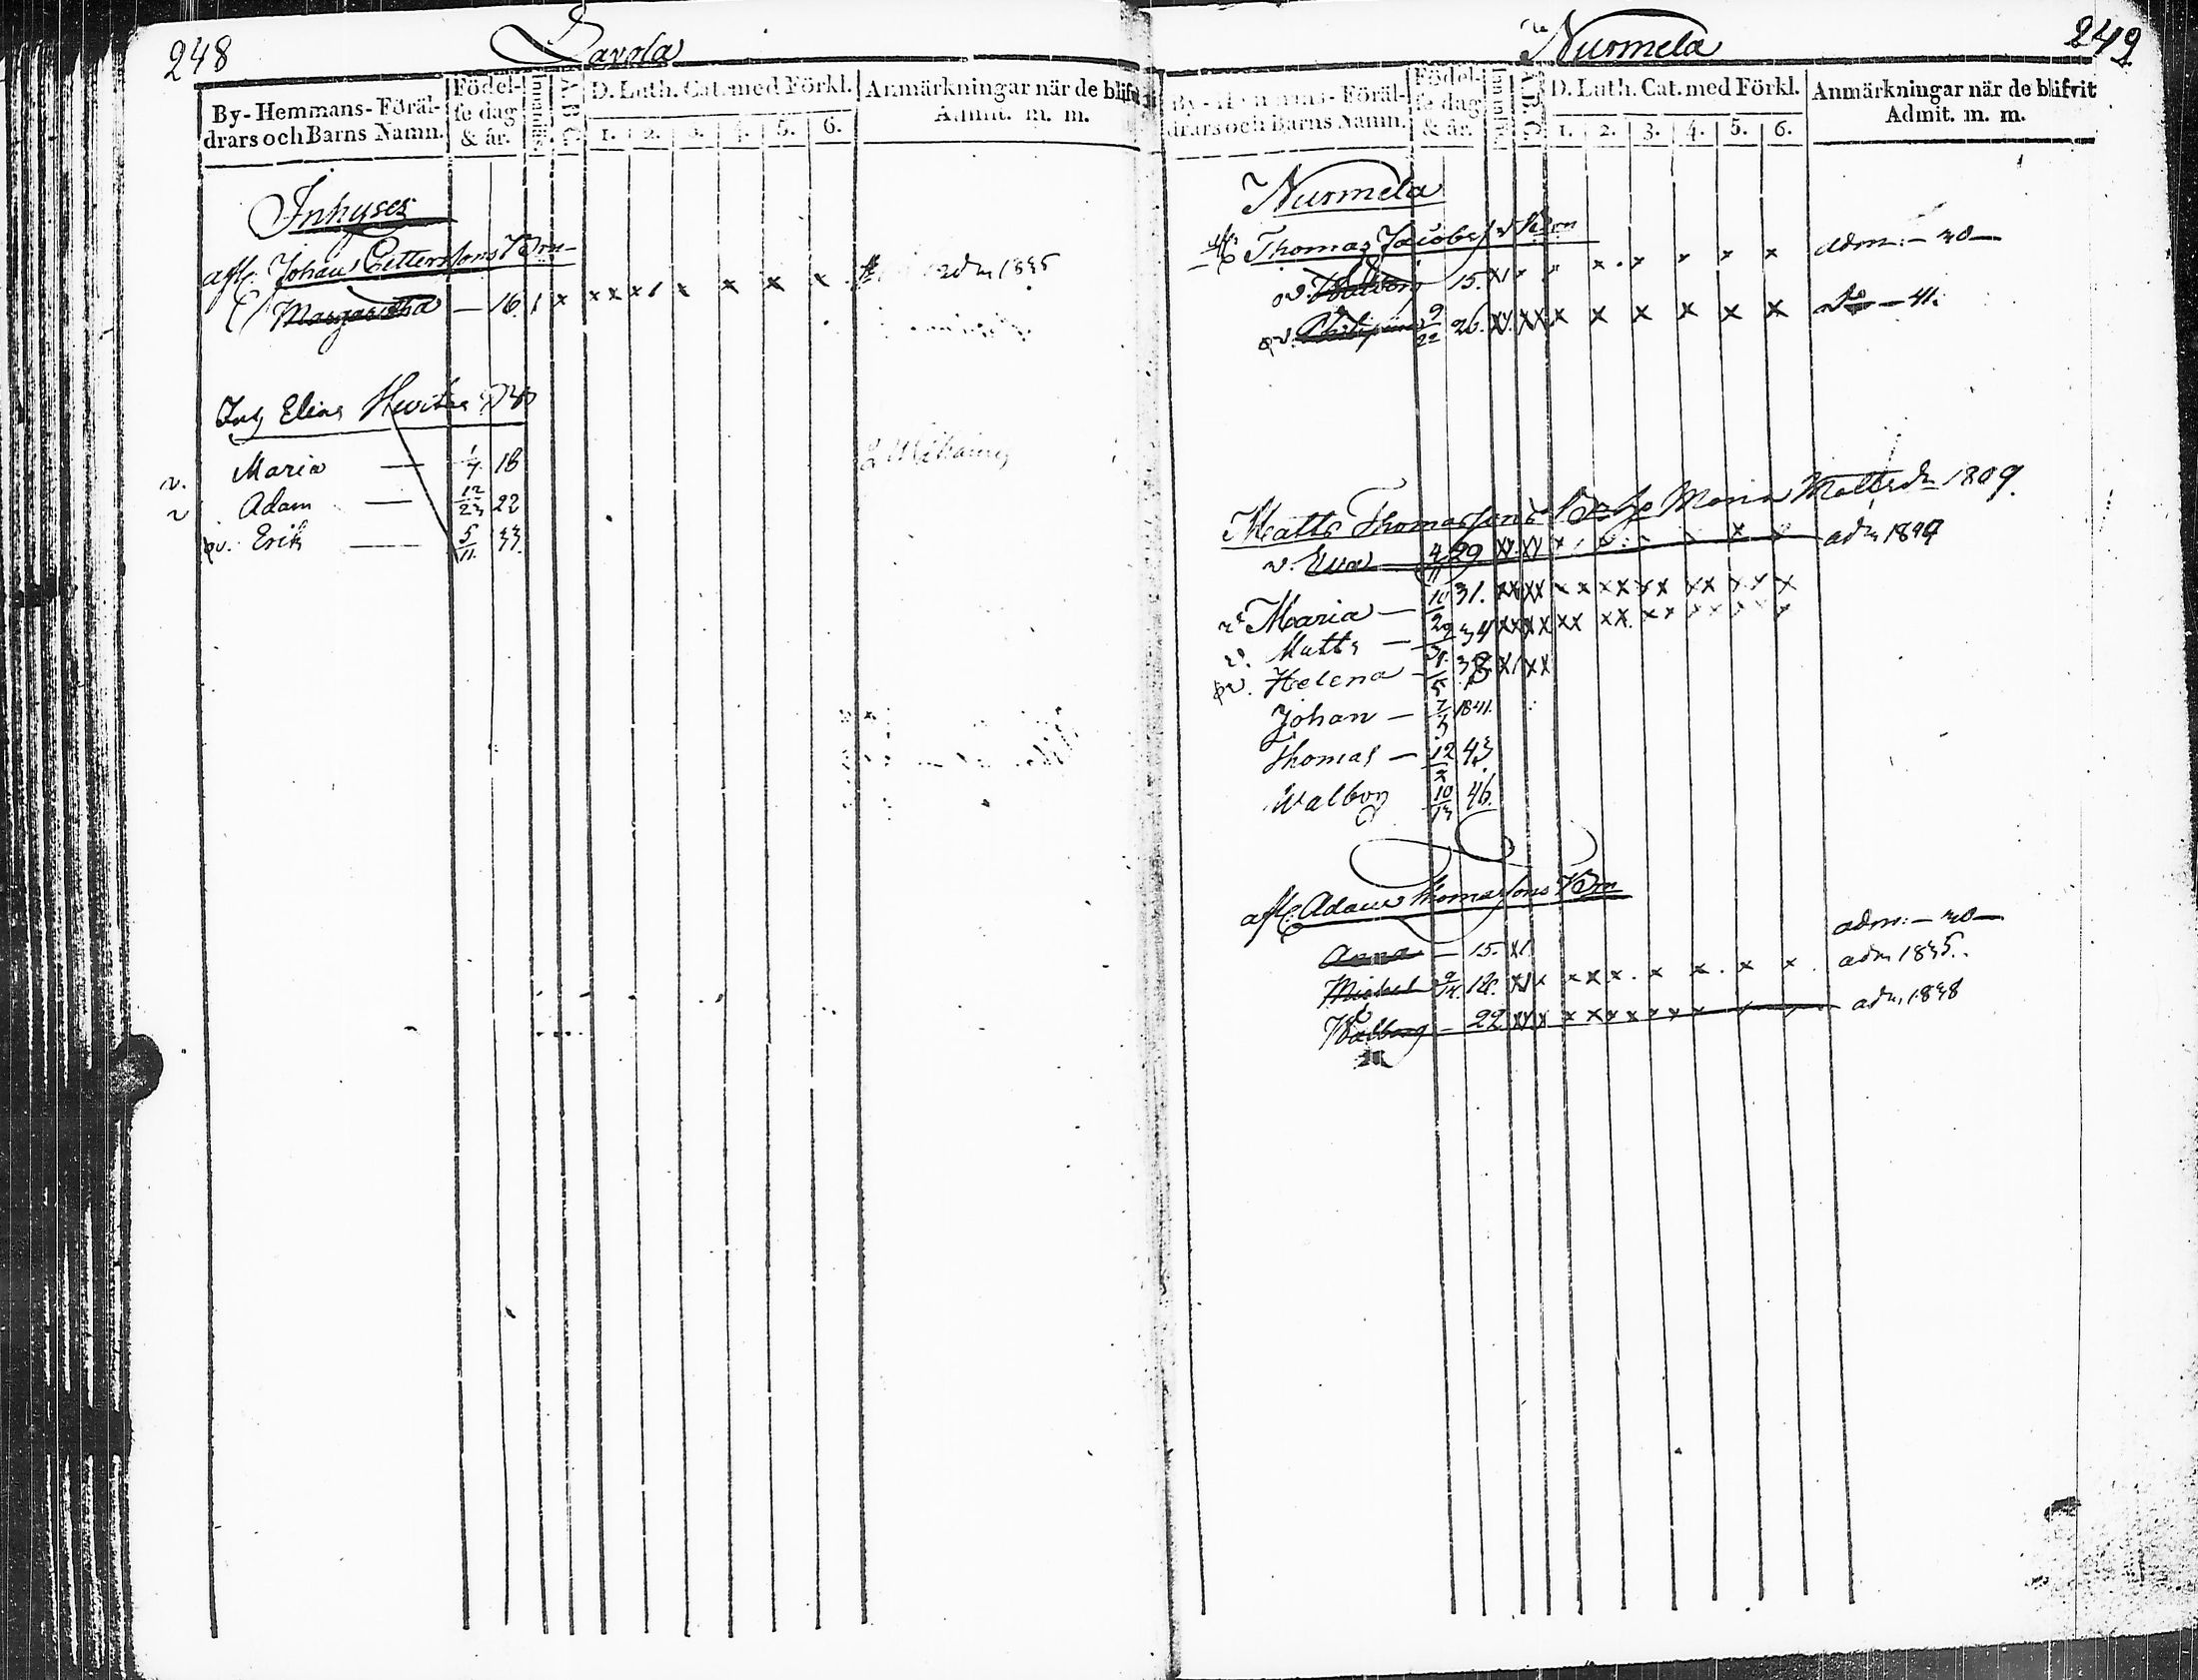 248
Savola
By-Hemmans-Föräl-
drars och Barns Namn.
Födel-
se dag
& år.
Innanläs.
A B C
D. Luth. Cat. med Förkl.
1. 2. 3. 4. 5. 6.
Anmärkningar när de blifvit
Admit. m. m.
Inhyses
afl. Johan Pettersons Barn
Margaretha — 16. x x x x x x x x x adm 1835
Inh Elias
v. Maria — 1/7. 18
v Adam — 12/23 22
v. Erik — 5/11. 33.
249
Nurmela
By-Hemmans-Föräl-
drars och Barns Namn.
Födel-
se dag
& år.
Innanläs.
A B C
D. Luth. Cat. med Förkl.
1. 2. 3. 4. 5. 6.
Anmärkningar när de blifvit
Admit. m. m.
Nurmela
afl. Thomas Jacobss Barn
v. Walborg 15. x x x x x x adm: — 30 —
v. Philippus 9/22 26. xx xx x x x x x x Do — 41.
Matts Thomassons Maria Mattsdr 1809.
v. Eva 4/11 29. xx xx x x adm 1844
v Maria — 10/ 31. xx xx x x xx xx xx xx x
v. Matts — 29/ 34 xx xx xx xx x x x x x x x
v. Helena — 31/5 38 x xx
Johan — 7/3 1841.
Thomas — 12/ 43
Walbor 10/13 46.
afl. Adam Thomassons Barn
Anna — 15. x adm: — 30 —
Michel 18. xx x x x x x x x adm 1835.
Walborg — 22 xx x x x x x x x x adm 1838